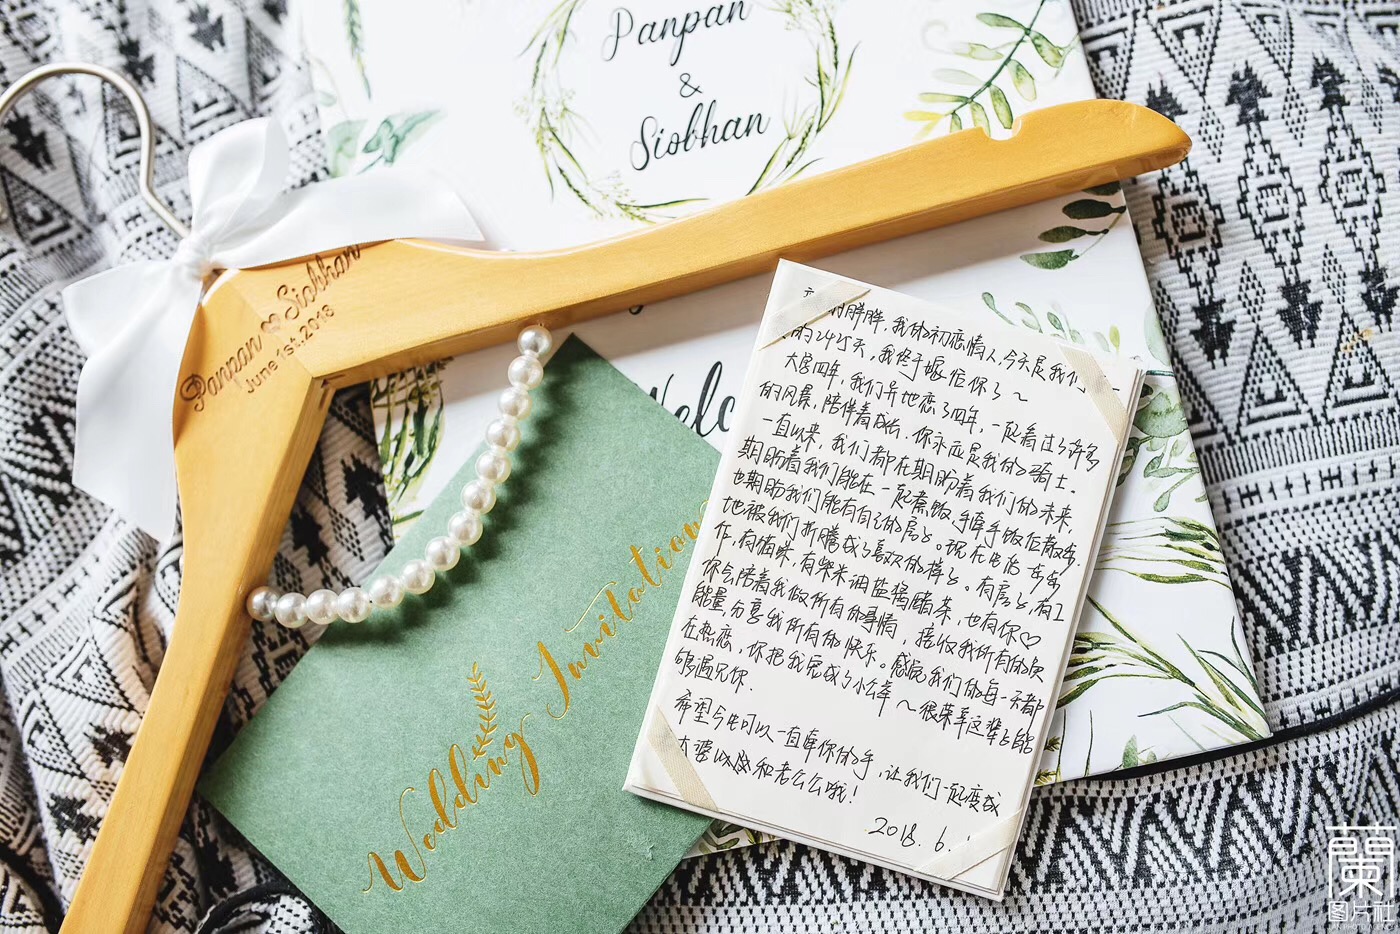 Panpan
&
Siobhan
Panpan ♥ Siobhan
June 1st.2018
Welc
Wedding Invitation
胖胖，我的初恋情人，今天是我们
的2425天，我终于嫁给你了～
大学四年，我们异地恋了四年，一起看过了许多
的风景，陪伴着成长．你永远是我的骑士．
一直以来，我们都在期盼着我们的未来，
期盼着我们能在一起煮饭，手牵手饭后散步．
也期盼我们能有自己的房子。现在生活一步步
地被我们折腾成了喜欢的样子。有房子，有工
作，有猫咪，有柴米油盐酱醋茶，也有你♡
你会陪着我做所有的事情，接收我所有的负
能量，分享我所有的快乐。感觉我们的每一天都
在热恋，你把我宠成了小公举～很荣幸这辈子能
够遇见你．
希望今生可以一直牵你的手，让我们一起变成
太婆以及和老公公哦！
2018.6.
蘭
图片社